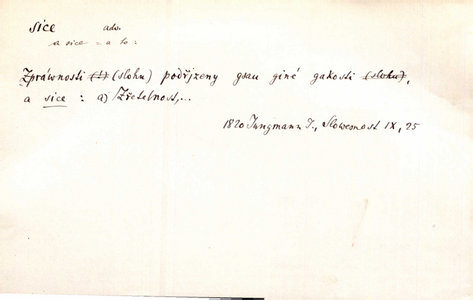 sice adv.
a sice = a to :
Zpráwnosti (!) (slohu) podřjzeny gsau giné gakosti (slohu),
a sice : a) Zřetelnost,..
1820 Jungmann J., Slowesnost IX, 25